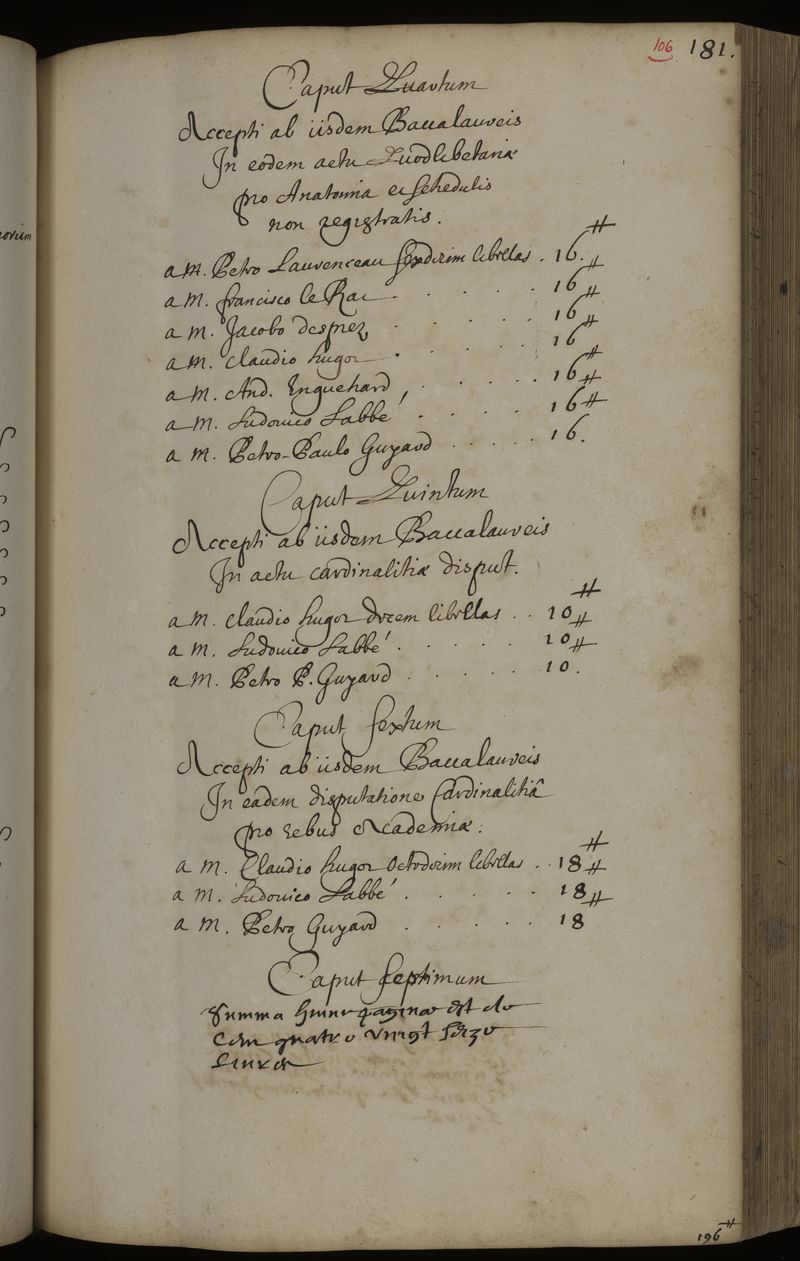 106 181.
Caput Quartum
Accepti ab iisdem Baccalaureis
In eodem actu Quodlibetariæ
pro Anatomia et schedulis
non registratis.
oviam
a M. Petro Laurenceau sexdecim libellas . 16.
a M. francisco le Rat . . . . . 16
a M. Jacobo desprez . . . . . 16
a M. claudio hugot . . . . . 16
a M. And. Enguehard , . . . . . 16
a M. Ludovico Labbé . . . . 16
a M. Petro-Paulo Guyard . . . . . 16.
Caput Quintum
Accepti ab iisdem Baccalaureis
In actu cardinalitiæ disput.
a M. claudio hugot decem libellas . . 10
a M. Ludovico Labbé . . . . . 10
a M. Petro P. Guyard . . . . . 10.
Caput sextum
Accepti ab iisdem Baccalaureis
In eadem disputatione Cardinalitiâ
pro rebus Academiæ.
a M. Claudio hugot Octodecim libellas . . 18
a M. Ludovico Labbé . . . . . 18
a M. Petro Guyard . . . . . 18
Caput septimum
Summa paginæ est de
Cen quatre vingt seize
Livres
196